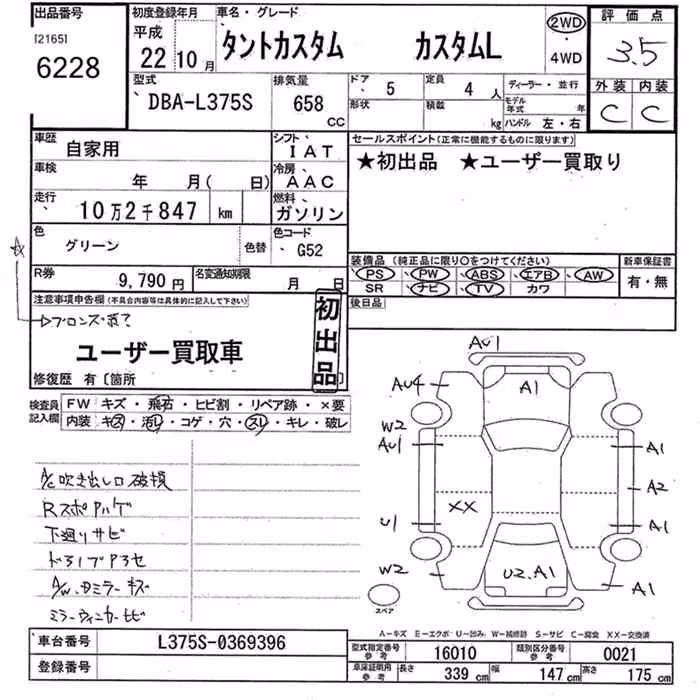 出品番号
[2165]
6228
初度登録年月
平成
22 10 月
車名・グレード
タントカスタム カスタムL
2WD
・
4WD
評価点
3.5
外装 内装
C C
型式
DBA-L375S
排気量
658
CC
ドア 5
定員 4 人
形状
積載 kg
ディーラー・並行
モデル年式 年
ハンドル 左・右
車歴
自家用
シフト
IAT
車検
年 月( 日)
冷房
AAC
走行
10万2千847 km
燃料
ガソリン
色
グリーン
色替
色コード
G52
R券
9,790 円
名変通知期限
月 日
セールスポイント(正常に機能するものに限ります)
★初出品 ★ユーザー買取り
装備品(純正品に限り○をつけてください)
PS PW ABS エアB AW
SR ナビ TV カワ
新車保証書
有・無
後日品
注意事項申告欄(不具合内容等は具体的に記入して下さい)
ユーザー買取車
初出品
修復歴 有〔箇所 〕
検査員記入欄
FW キズ・飛石・ヒビ割・リペア跡・×要
内装 キズ・汚レ・コゲ・穴・スレ・キレ・破レ
A/C吹き出し口破損
Rスポアルゲ
下廻りサビ
A/W、ミラーキズ
AU1
AU4
A1
W2
AU1
A1
A2
XX
U1
A1
W2
U2.A1
A1
スペア
A―キズ E―エクボ U―凹み W―補修跡 S―サビ C―腐食 XX―交換済
車台番号
L375S-0369396
登録番号
型式指定番号 参考 16010
類別区分番号 参考 0021
車庫証明用 参考 長さ 339 cm 幅 147 cm 高さ 175 cm